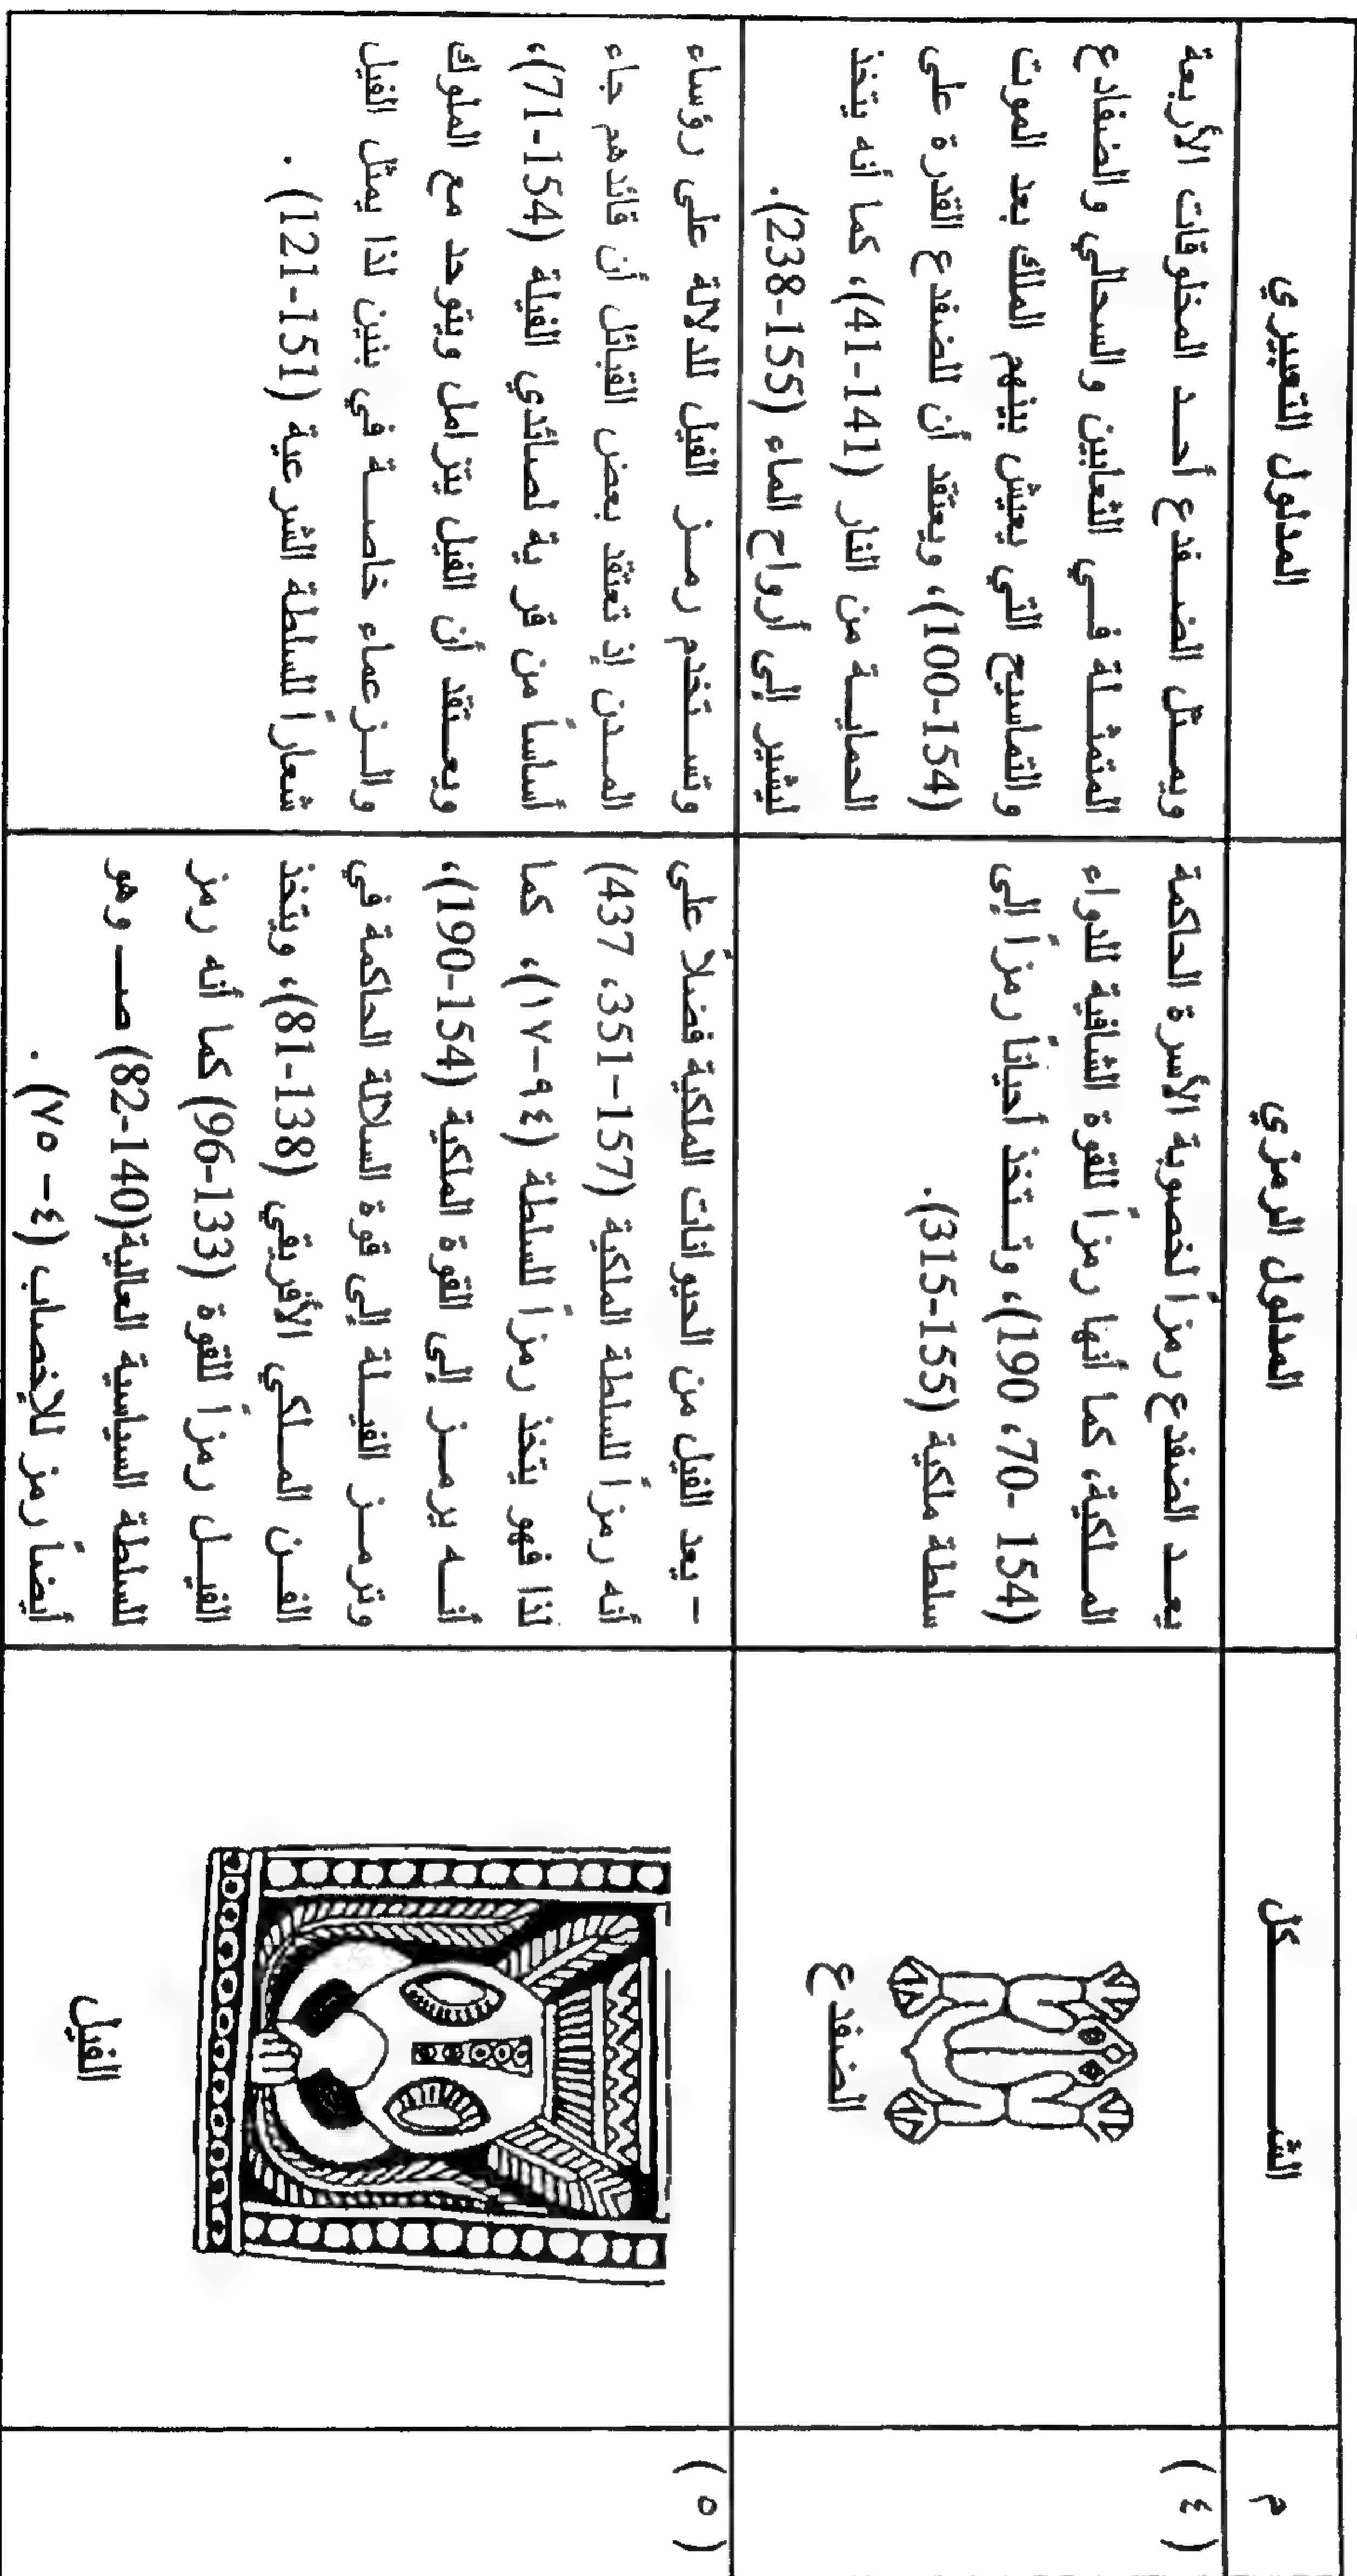 م
الشـــــــــكل
المدلول الرمزي
المدلول التعبيري
( ٤ )
الضفدع
يعــد الضفدع رمزاً لخصوبة الأسرة الحاكمة
المــلكية، كما أنها رمزاً للقوة الشافية للدواء
(154 -70، 190)، وتــتخذ أحياناً رمزاً إلى
سلطة ملكية (155-315).
ويمــثل الضــفدع أحــد المخلوقات الأربعة
المتمثــلة فــي الثعابين والسحالي والضفادع
والتماسيح التي يعيش بينهم الملك بعد الموت
(154-100)، ويعتقد أن للضفدع القدرة على
الحمايــة من النار (141-41)، كما أنه يتخذ
ليشير إلى أرواح الماء (155-238).
( ٥ )
الفيل
– يعد الفيل من الحيوانات الملكية فضلاً على
أنه رمزاً للسلطة الملكية (157–351، 437)
لذا فهو يتخذ رمزاً للسلطة (٩٤–١٧)، كما
أنــه يرمــز إلى القوة الملكية (154-190)،
وترمــز الفيــلة إلى قوة السلالة الحاكمة في
الفــن المــلكي الأفريقي (138-81)، ويتخذ
الفيــل رمزاً للقوة (133-96) كما أنه رمز
للسلطة السياسية العالية(140-82) صــ وهو
أيضاً رمز للإخصاب (٤ – ٧٥) .
وتســتخدم رمــز الفيل للدلالة على رؤساء
المــدن إذ تعتقد بعض القبائل أن قائدهم جاء
أساساً من قرية لصائدي الفيلة (154-71)،
ويعــتقد أن الفيل يتزامل ويتوحد مع الملوك
والــزعماء خاصــة في بنين لذا يمثل الفيل
شعاراً للسلطة الشرعية (151-121) .